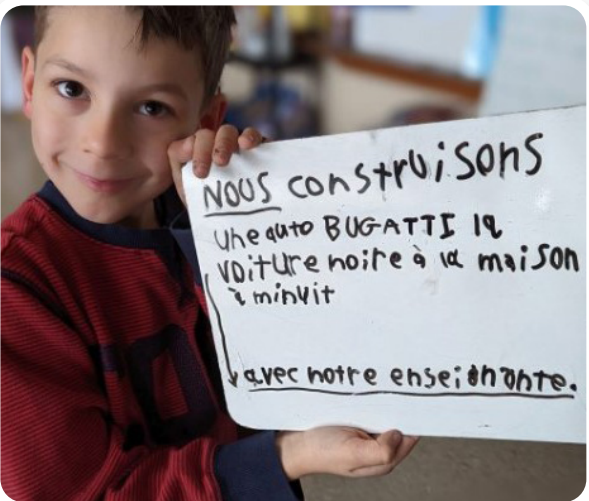 NOUS construisons
une auto BUGATTI la
voiture noire à la maison
à minuit
avec notre enseinante.